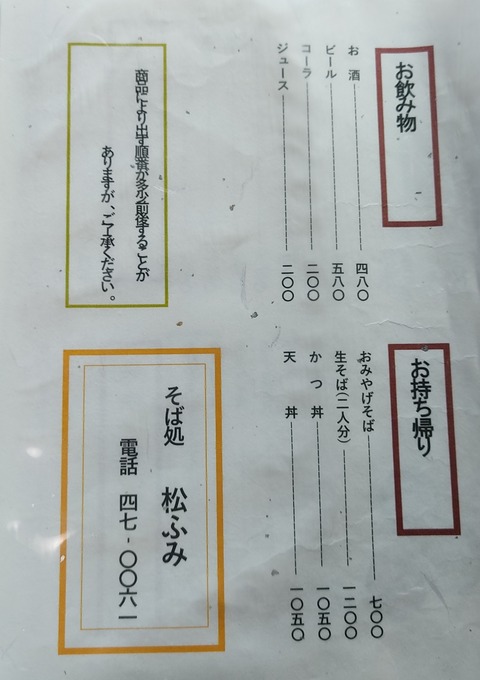 お飲み物
お酒 四八〇
ビール 五八〇
コーラ 二〇〇
ジュース 二〇〇
商品により出す順番が多少前後することが
ありますが、ご了承ください。
お持ち帰り
おみやげそば 七〇〇
生そば(二人分) 一二〇〇
かつ丼 一〇五〇
天丼 一〇五〇
そば処 松ふみ
電話 四七-〇〇六一